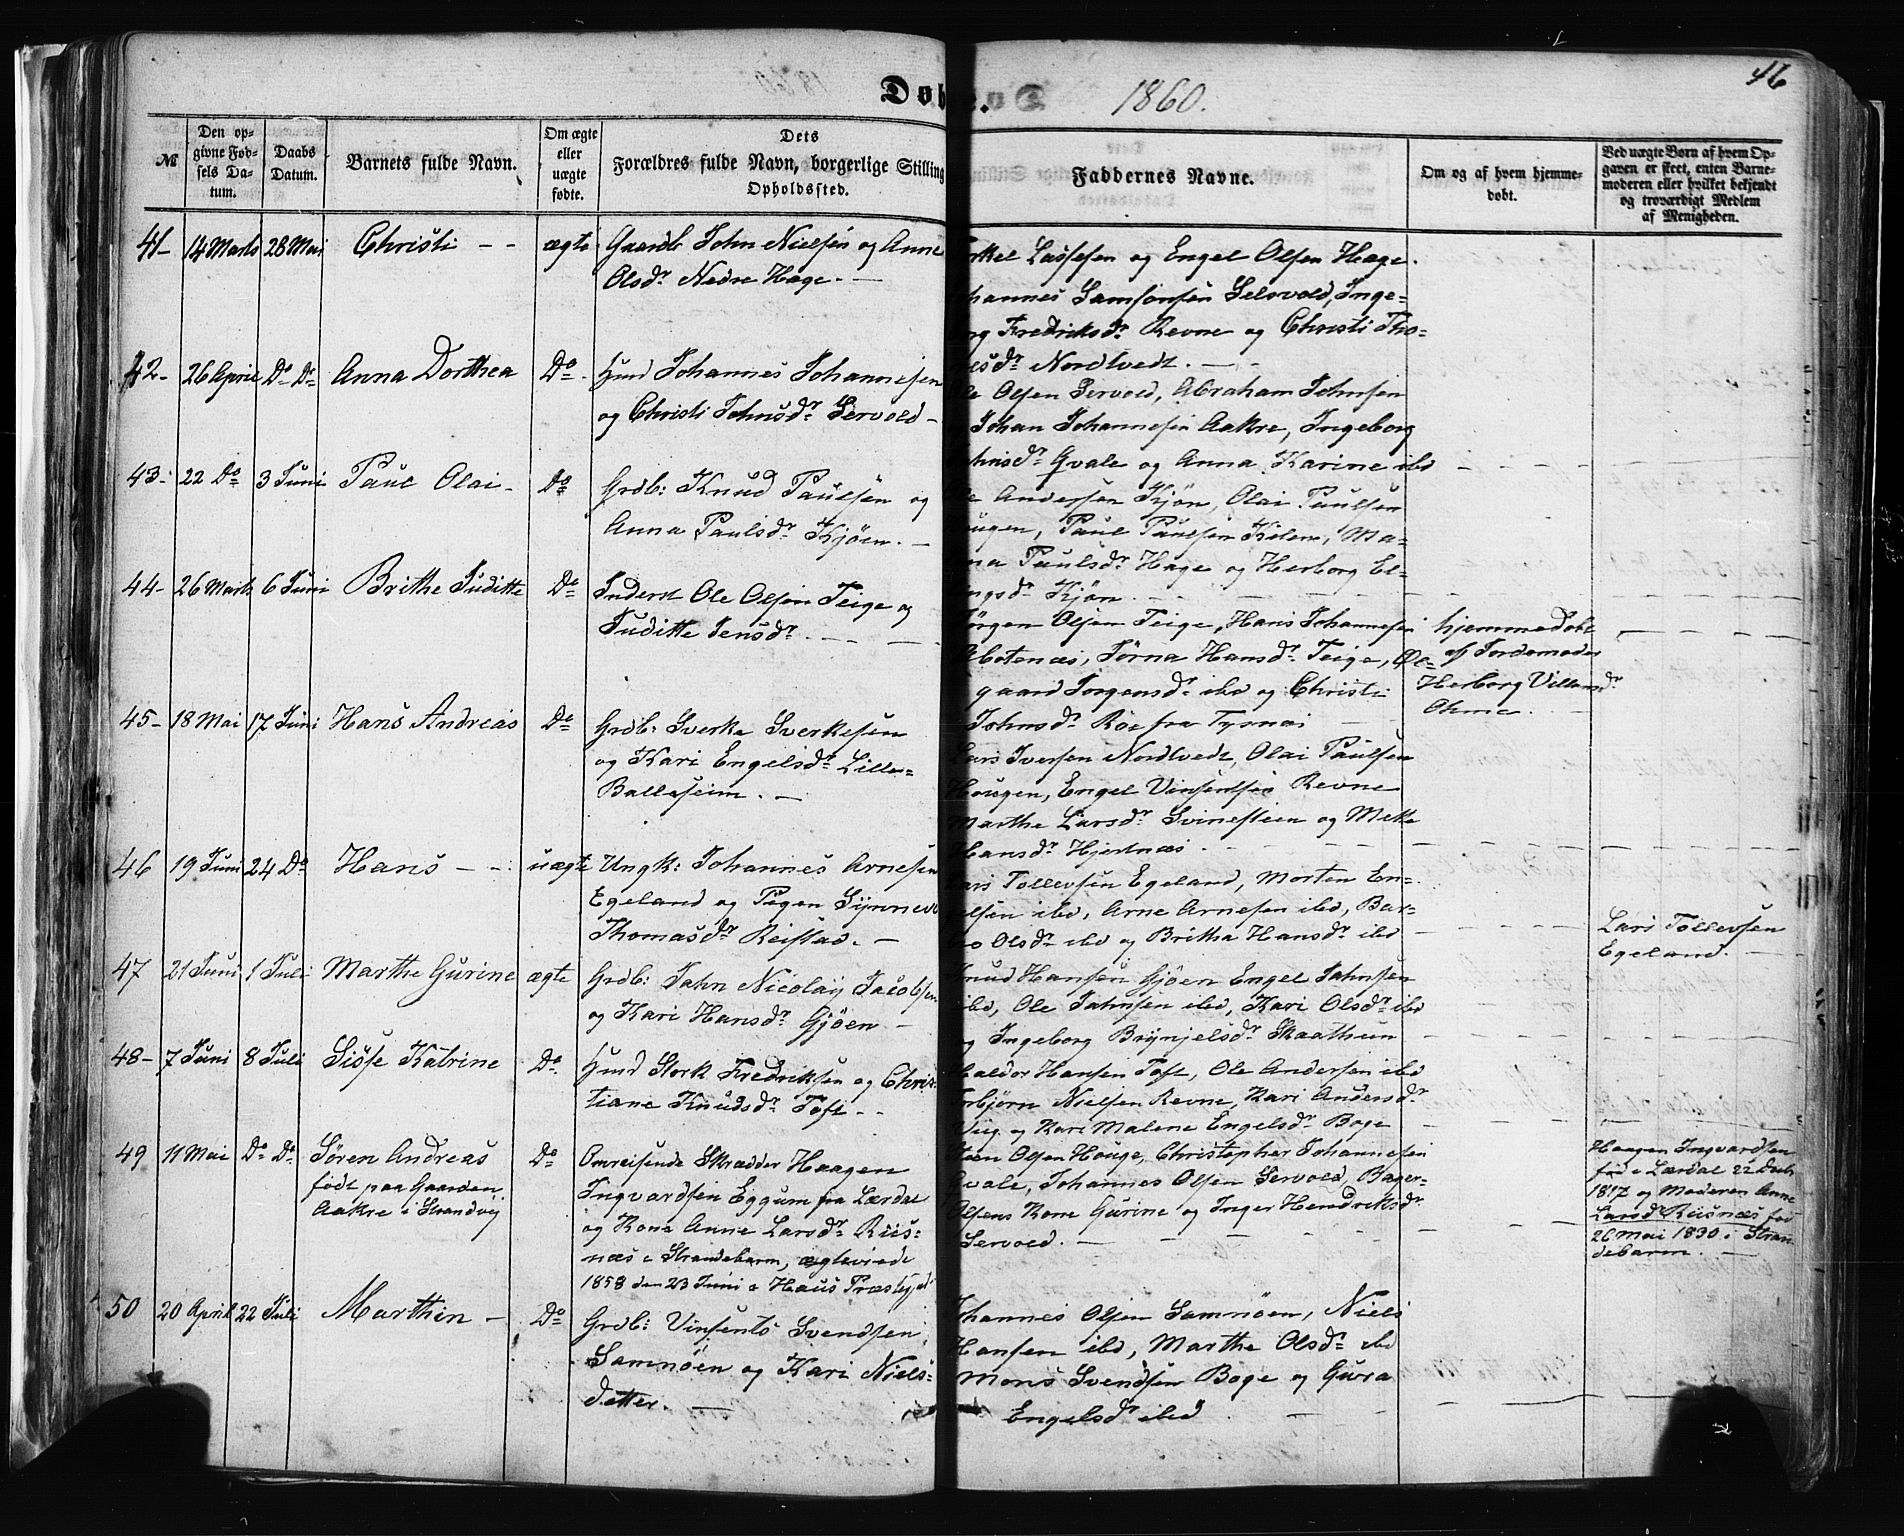 46
Døbte. 1860.
№
Den op-
givne Fød-
sels Da-
tum.
Daabs
Datum.
Barnets fulde Navn.
Om ægte
eller
uægte
fødte.
Dets
Forældres fulde Navn, borgerlige Stilling
Opholdssted.
Faddernes Navne.
Om og af hvem hjemme-
døbt.
Ved uægte Børn af hvem Op-
gaven er skeet, enten Barne-
moderen eller hvilket bekjendt
og troværdigt Medlem
af Menigheden.
41- 14 Marts 28 Mai Christi - - ægte Gaardb John Nielsen og Anne
Olsdr Nedre Hage. -
Lassesen og Engel Olsen Hage.
Johannes Samsonsen Selsvold, Inge-
Fredriksdr Revne og Christi Tho-
Nordtvedt. -
42- 26 April Do Do Anna Dorthea Do Huusd Johannes Johannesen
og Christi Johnsdr Servold -
Ole Olsen Servold, Abraham Johnsen
Johan Johannesen Aakre, Ingeborg
Johnsdr Qvale og Anna Karine ibd
43- 22 Do 3 Juni Paul Olai - Do Grdb: Knud Paulsen og
Anna Paulsdr Kjöen. -
Ole Andersen Kjön, Olai Paulsen
Hougen, Paul Paulsen Kilene, Ma-
Paulsdr Hage og Herborg El-
Kjön.
44- 26 Marts 6 Juni Brithe Juditte Do Inderst Ole Olsen Teige og
Juditte Jensdr. -
Jörgen Olsen Teige, Hans Johannesen
Abotenæs, Jörna Hansdr Teige, Oe-
gaard Jorgensdr ibd og Christi
Johnsdr Röe fra Tysnæs
hjemmedöbt
af Jordemoder
Herborg Villumsdr
45- 18 Mai 17 Juni Hans Andreas Do Grdb: Sverke Sverkesen
og Kari Engelsdr Lille-
Ballesheim. -
Lars Iversen Nordtvedt, Olai Paulsen
Hougen, Engel Vinsentsen Revne
Marthe Larsdr Svinesteen og Mette
Hansdr Hjertnæs
46 19 Juni 24 Do Hans - - uægte Ungk: Johannes Arnesen
Egeland og Pigen Synneve
Thomasdr Reistad. -
Lars Tollevsen Egeland, Morten En-
gelsen ibd, Arne Arnesen ibd, Bar-
bro Olsdr ibd og Britha Hansdr ibd
Lars Tollevsen
Egeland. -
47 21 Juni 1 Juli Marthe Gurine ægte Grdb: Jahn Nicolay Jacobsen
og Kari Hansdr Gjöen -
Knud Hansen Gjöen Engel Jahnsen
ibd, Ole Jahnsen ibd, Kari Olsdr ibd
og Ingeborg Brynjelsdr Skaatheim
48- 7 Juni 8 Juli Sisse Katrine Do Huusd Stork Fredriksen og Chris-
tiane Knudsdr Toft. -
Haldor Hansen Toft, Ole Andersen ibd
Torbjörn Nielsen Revne, Kari Andersdr
og Kari Malene Engelsdr Boge
49 11 Mai Do Do Sören Andreas
födt paa Gaarden
Aakre i Strandvig
Do Omreisende Skrædder Haagen
Ingvardsen Eggum fra Lærdal
og Kone Anne Larsdr Riis-
næs i Strandebarm, ægteviede
1858 den 23 Juni i Haus Præstegjæld
Steen Olsen Houge, Christopher Johannesen
Qvale, Johannes Olsen Servold, Bager-
Olsens Kone Gurine og Inger Hendriksdr
Servold.
Haagen Ingvardsen
föd i Lærdal 22 Decb
1817 og Moderen Anne
Larsdr Riisnæs föd
26 Mai 1830 i Stran-
debarm. -
50 20 April 22 Juli Marthin - Do Grdb: Vinsents Svendsen
Samnöen og Kari Niels-
datter. -
Johannes Olsen Samnöen, Niels
Hansen ibd, Marthe Olsdr ibd
Mons Svendsen Boge og Gura
Engelsdr ibd